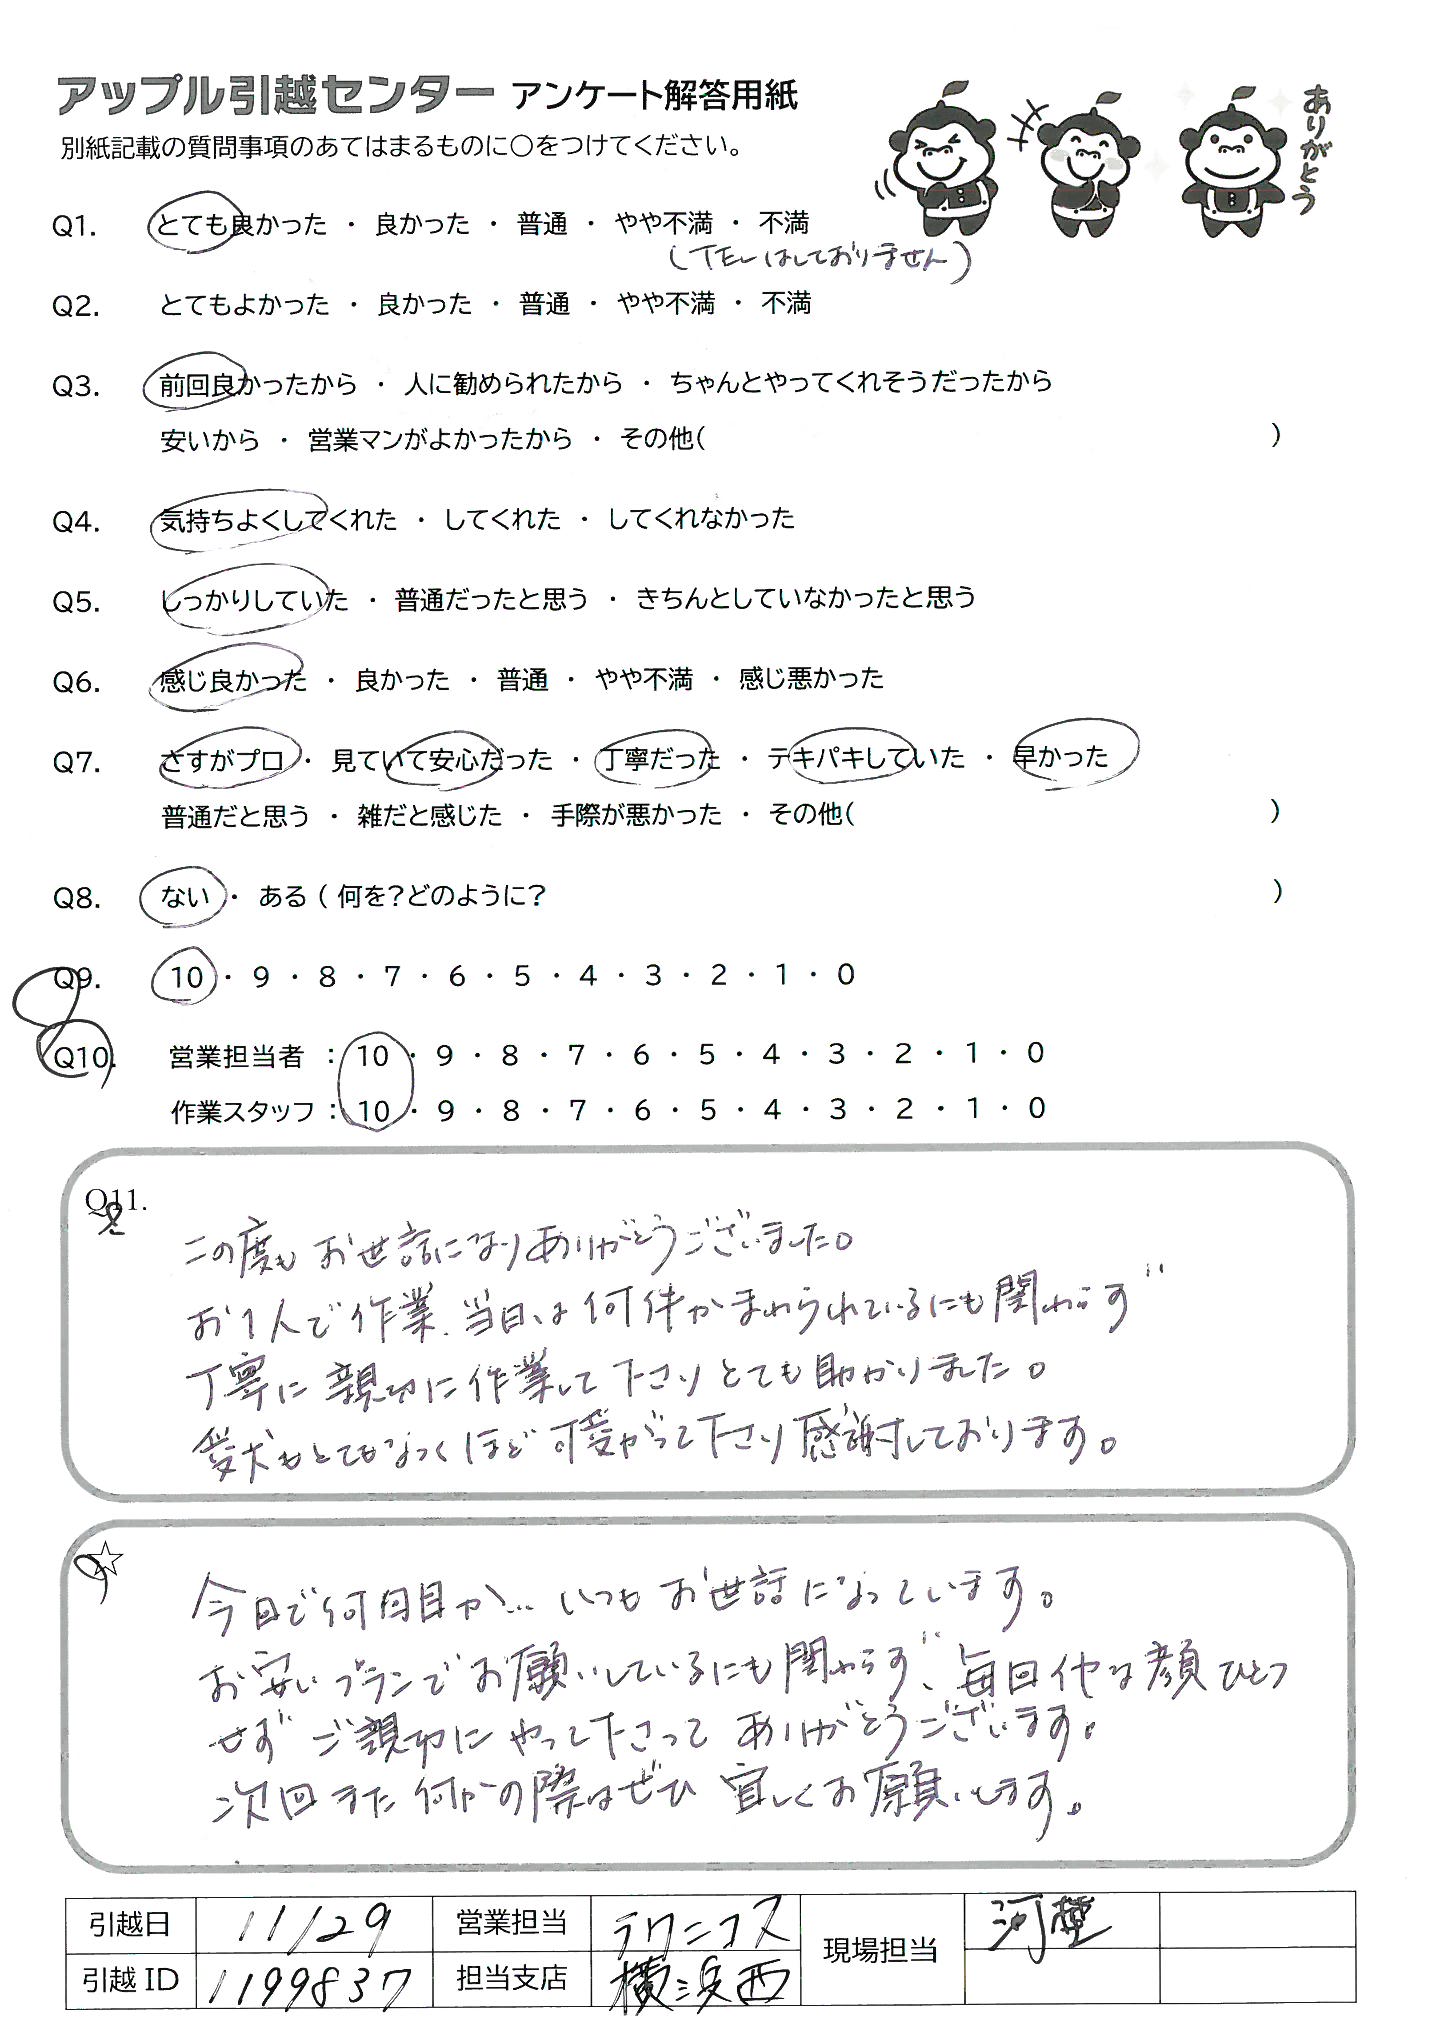 アップル引越センター アンケート解答用紙
ありがとう
別紙記載の質問事項のあてはまるものに○をつけてください。
Q1. とても良かった ・ 良かった ・ 普通 ・ やや不満 ・ 不満
(TELはしておりません)
Q2. とてもよかった ・ 良かった ・ 普通 ・ やや不満 ・ 不満
Q3. 前回良かったから ・ 人に勧められたから ・ ちゃんとやってくれそうだったから
安いから ・ 営業マンがよかったから ・ その他( )
Q4. 気持ちよくしてくれた ・ してくれた ・ してくれなかった
Q5. しっかりしていた ・ 普通だったと思う ・ きちんとしていなかったと思う
Q6. 感じ良かった ・ 良かった ・ 普通 ・ やや不満 ・ 感じ悪かった
Q7. さすがプロ ・ 見ていて安心だった ・ 丁寧だった ・ テキパキしていた ・ 早かった
普通だと思う ・ 雑だと感じた ・ 手際が悪かった ・ その他( )
Q8. ない ・ ある ( 何を?どのように? )
Q9. 10 ・ 9 ・ 8 ・ 7 ・ 6 ・ 5 ・ 4 ・ 3 ・ 2 ・ 1 ・ 0
8
Q10. 営業担当者 : 10 ・ 9 ・ 8 ・ 7 ・ 6 ・ 5 ・ 4 ・ 3 ・ 2 ・ 1 ・ 0
9
作業スタッフ : 10 ・ 9 ・ 8 ・ 7 ・ 6 ・ 5 ・ 4 ・ 3 ・ 2 ・ 1 ・ 0
Q11.
この度もお世話になりありがとうございました。
お1人で作業、当日は何件かまわられているにも関わらず
丁寧に親切に作業して下さりとても助かりました。
愛犬もとてもなつくほど可愛がって下さり感謝しております。
☆
9
今日で何回目か… いつもお世話になっています。
お安いプランでお願いしているにも関わらず、毎回イヤな顔ひとつ
せずご親切にやって下さってありがとうございます。
次回また何かの際はぜひ宜しくお願いします。
引越日 11/29 営業担当 テクニコス 現場担当
引越ID 1199837 担当支店 横浜西